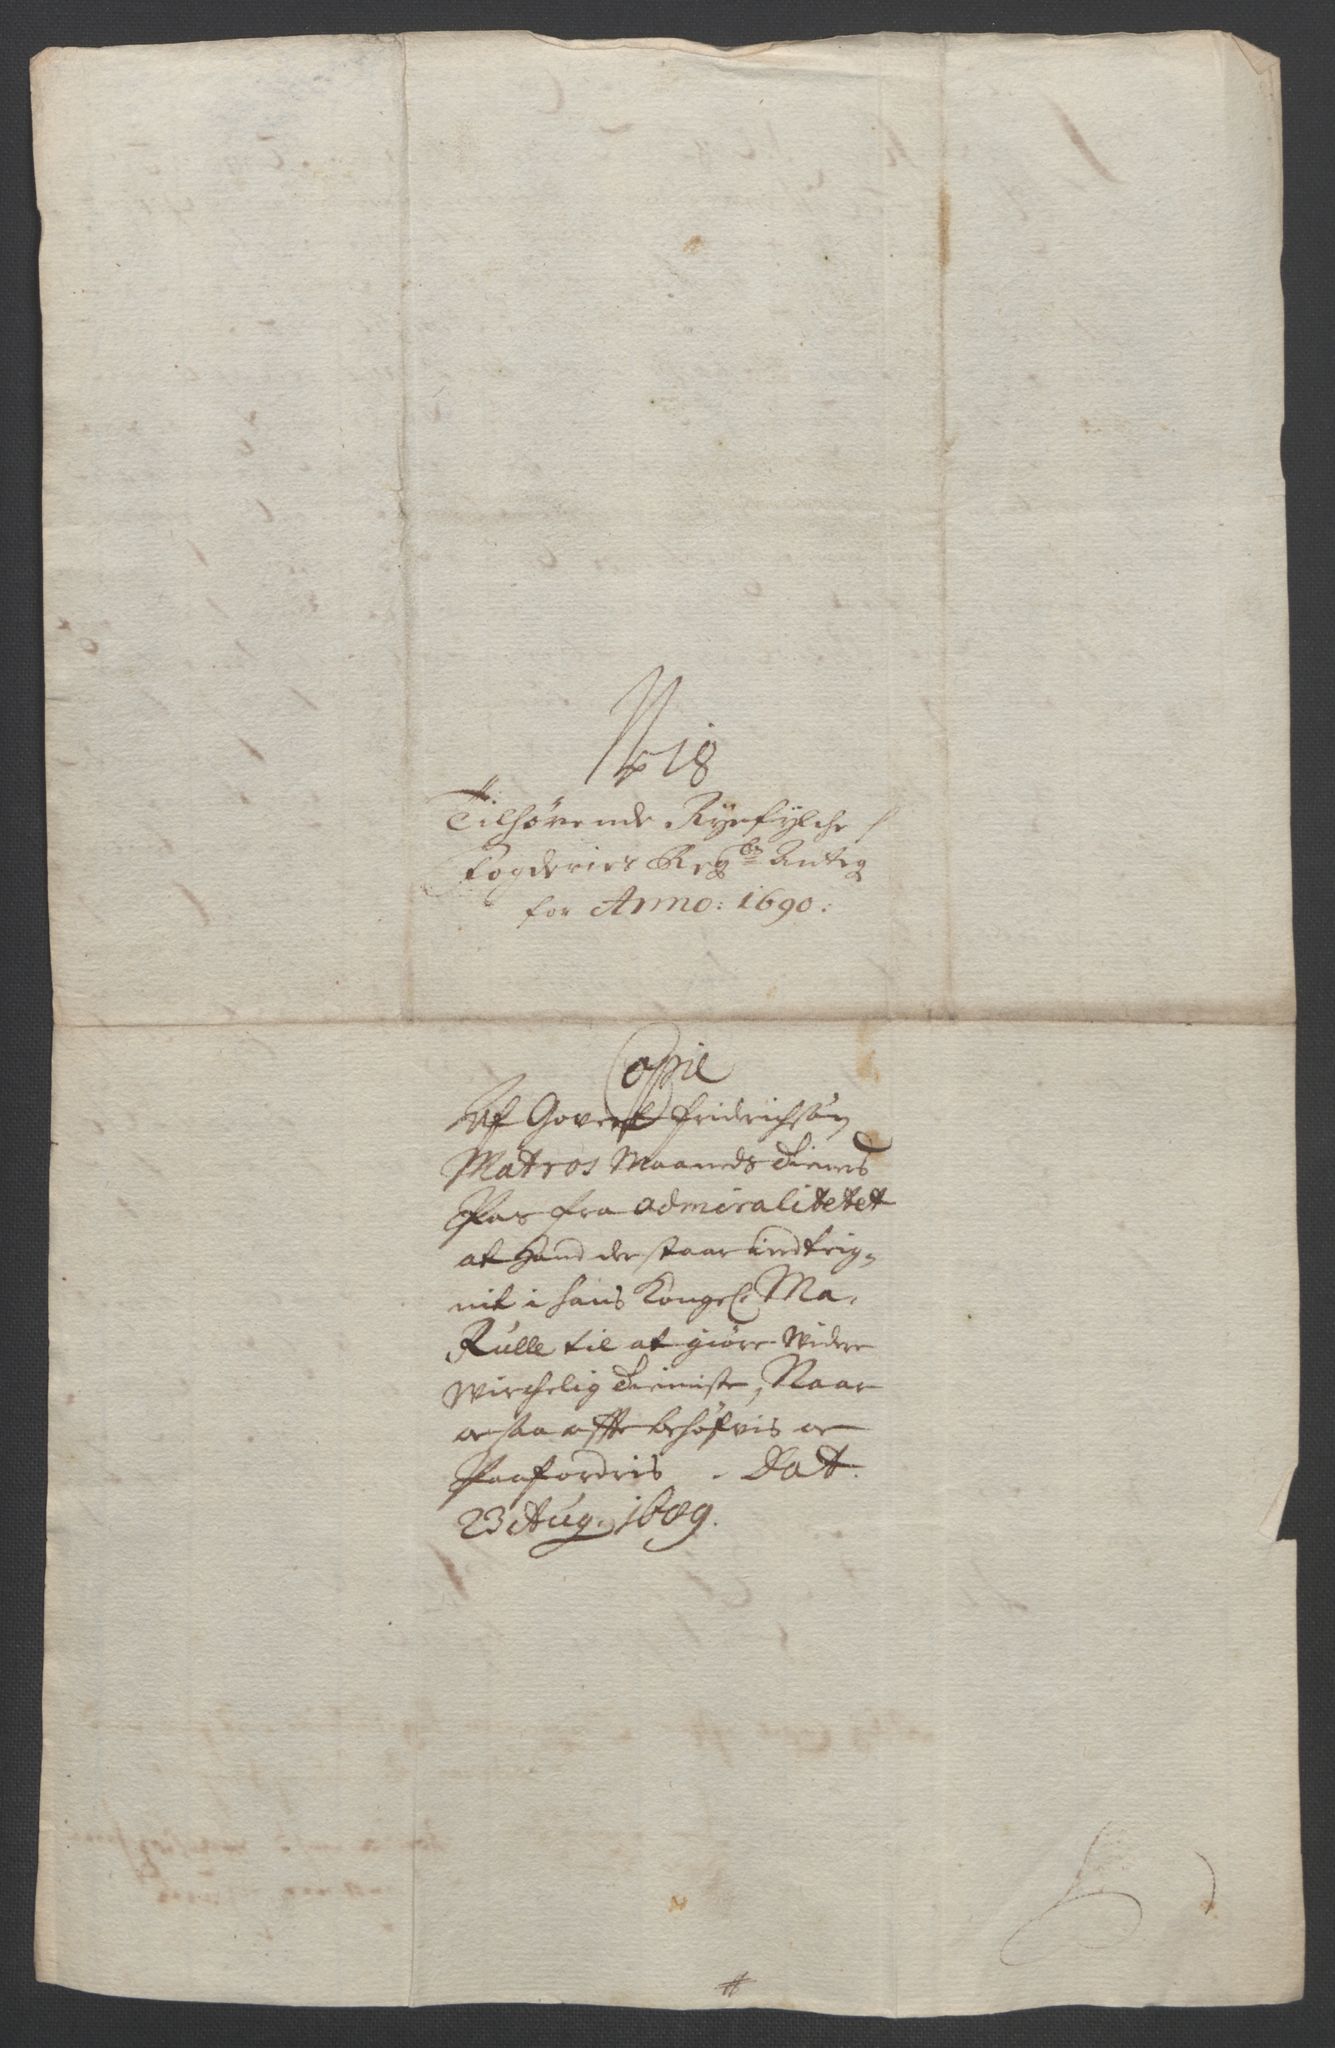 No 18
Tilhörende Ryefylche
Fogderies Reg Anteg
for Anno: 1690:
Copie
Af Govert Fridrichsön
Matros Maaneds Tienis
Pas fra Admiralitetet
at hand der staar indteig¬
nit i hans Kongel Ma.
Rulle til at giöre widere
wirchelig Tieniste, Naar
saa offte behöfvis
Paafordris. Dat.
23 Aug. 1689.